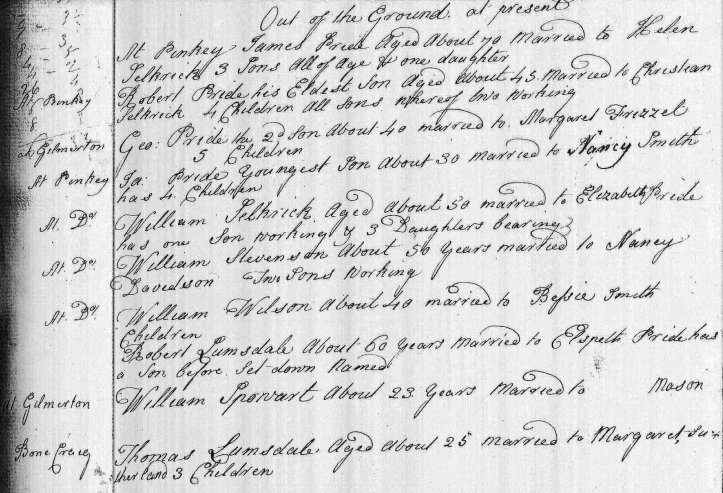 Out of the Ground. at present
At Pinkey James Pride Aged About 70 Married to Helen
Selkrick 3 Sons All of Age & one daughter
Robert Pride his Eldest Son Aged About 45. Married to Christian
At Pinkey Selkrick 4 Children All Sons whereof two Working
Geo: Pride the 2d Son About 40 married to Margaret Frizzel
Gilmerton 5 Children
At Pinkey Ja: Pride Youngest Son About 30 Married to Nancy Smith
has 4 Children
At Do. William Selkrick Aged about 50 married to Elizabeth Pride
has one Son working & 3 Daughters bearing
At Do. William Stevenson About 50 Years married to Nancy
Davidson Two Sons Working
At Do. William Wilson About 40 married to Bessie Smith
Children
Robert Lumsdale About 60 Years Married to Elspeth Pride has
a Son before Set down Named
At Gilmerton William Spowart About 23 Years Married to Mason
Bone Craig Thomas Lumsdale Aged About 25 married to Margaret Su=
therland 3 Children